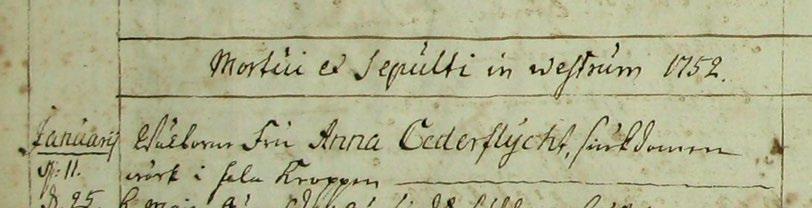 Mortui et Sepulti in westrum 1752.
Januarij Wälborne Fru Anna Cederflycht, siukdomen
d. 11. wärk i hela Kroppen
d. 25.